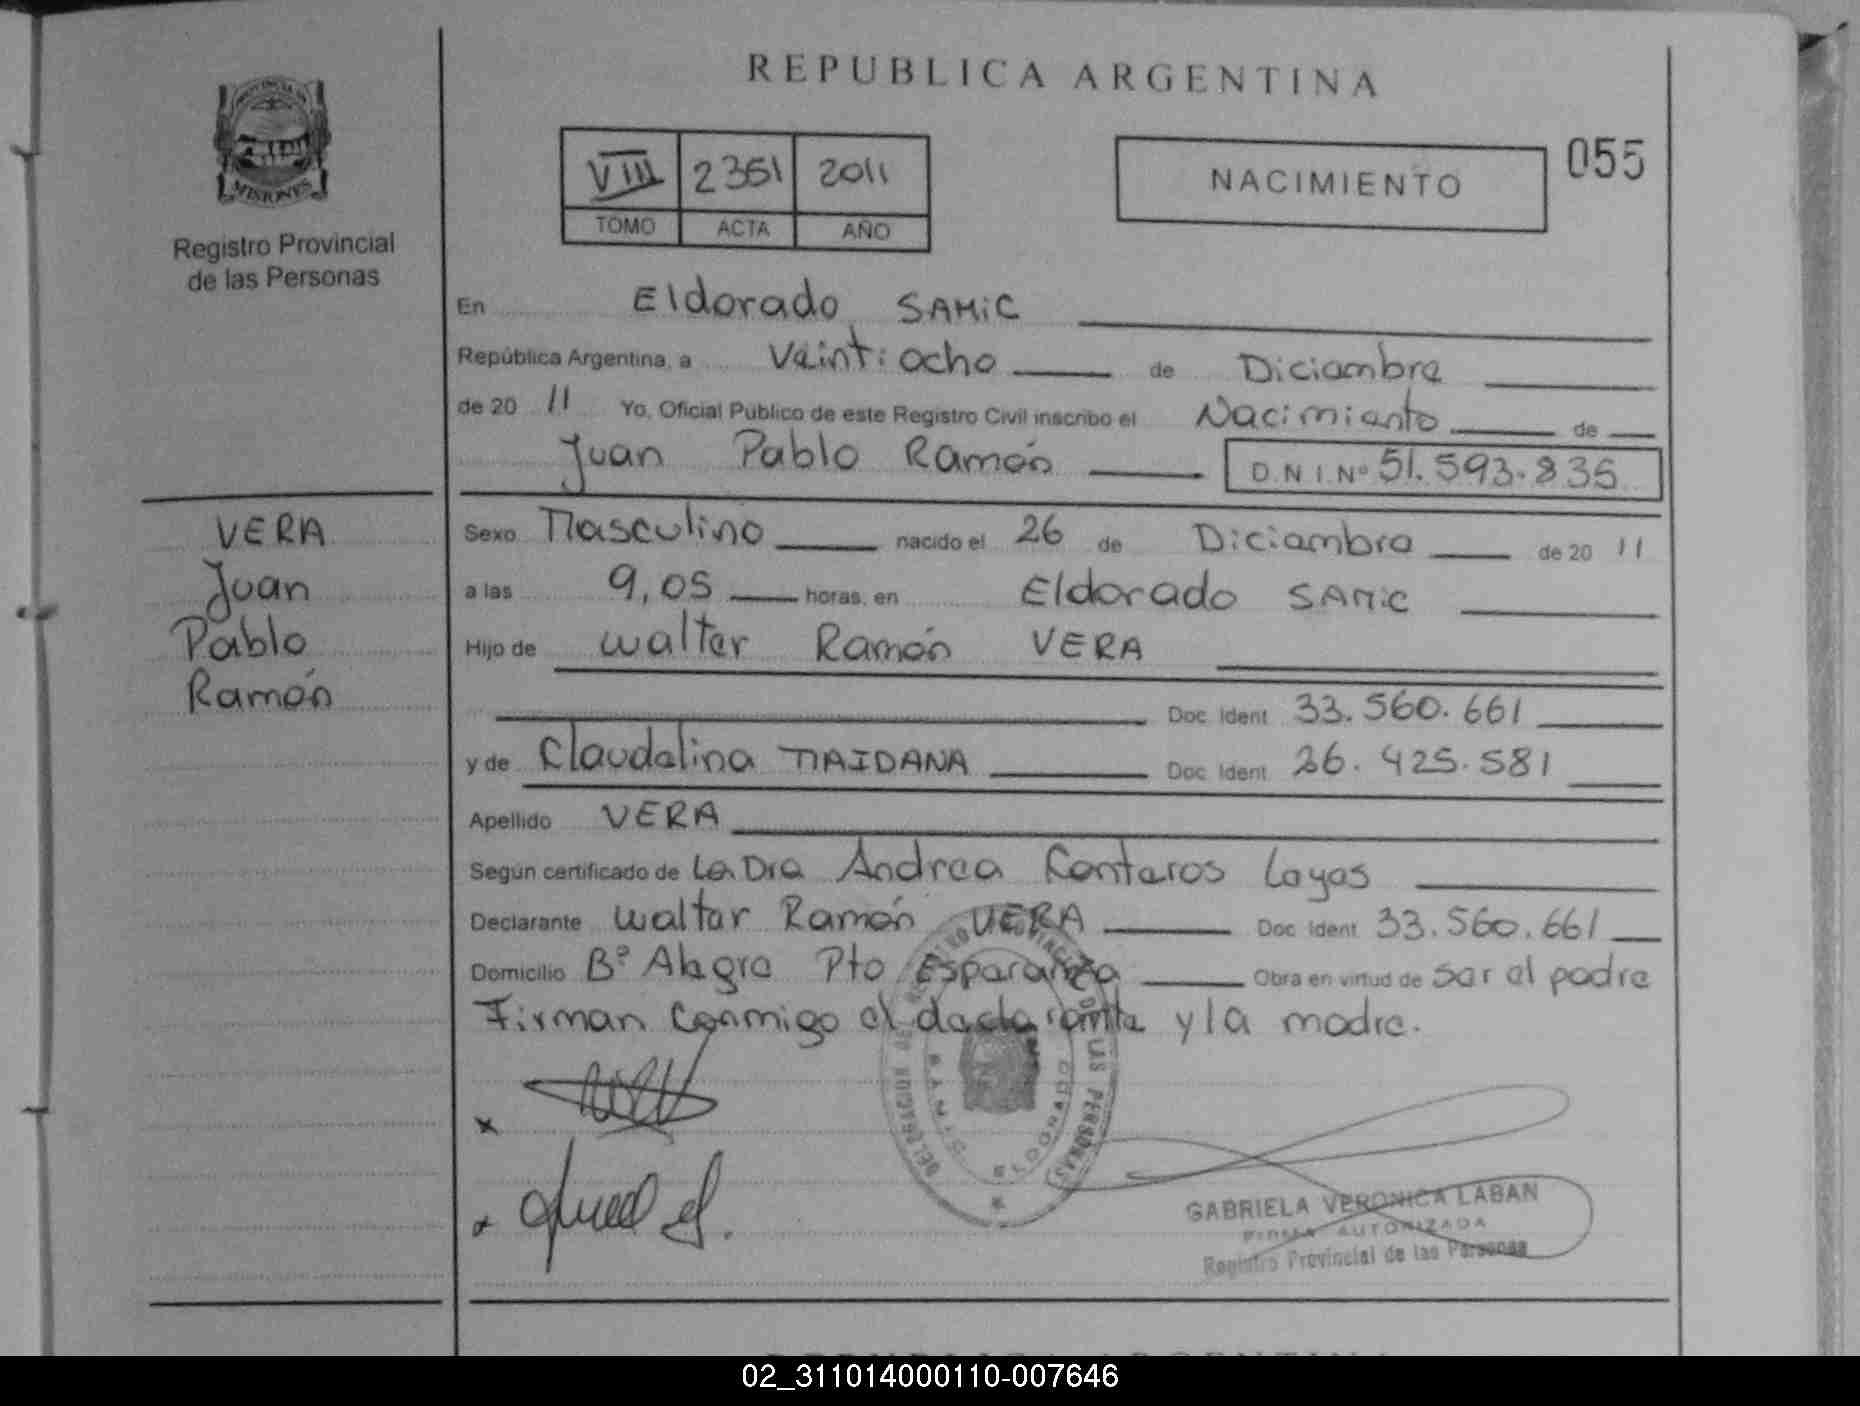 REPUBLICA ARGENTINA
PROVINCIA DE
MISIONES
Registro Provincial
de las Personas
VIII 2351 2011
TOMO ACTA AÑO
NACIMIENTO
055
En Eldorado SAMiC
República Argentina, a Veintiocho de Diciembre
de 20 11 Yo, Oficial Público de este Registro Civil inscribo el Nacimiento de
Juan Pablo Ramón D.N.I. Nº 51.593.835
VERA
Juan
Pablo
Ramón
Sexo Masculino nacido el 26 de Diciembre de 20 11
a las 9,05 horas, en Eldorado SAMic
Hijo de Walter Ramón VERA
Doc. Ident. 33.560.661
y de Claudelina MAIDANA Doc. Ident. 26.425.581
Apellido VERA
Según certificado de La Dra Andrea Conteros Loyos
Declarante Walter Ramón VERA Doc. Ident. 33.560.661
Domicilio Bº Alegre Pto Esperanza Obra en virtud de ser el padre
Firman Conmigo el declarante y la madre.
DELEGACION DE REGISTRO PROVINCIAL DE LAS PERSONAS
ELDORADO
GABRIELA VERONICA LABAN
FIRMA AUTORIZADA
Registro Provincial de las Personas
02_311014000110-007646